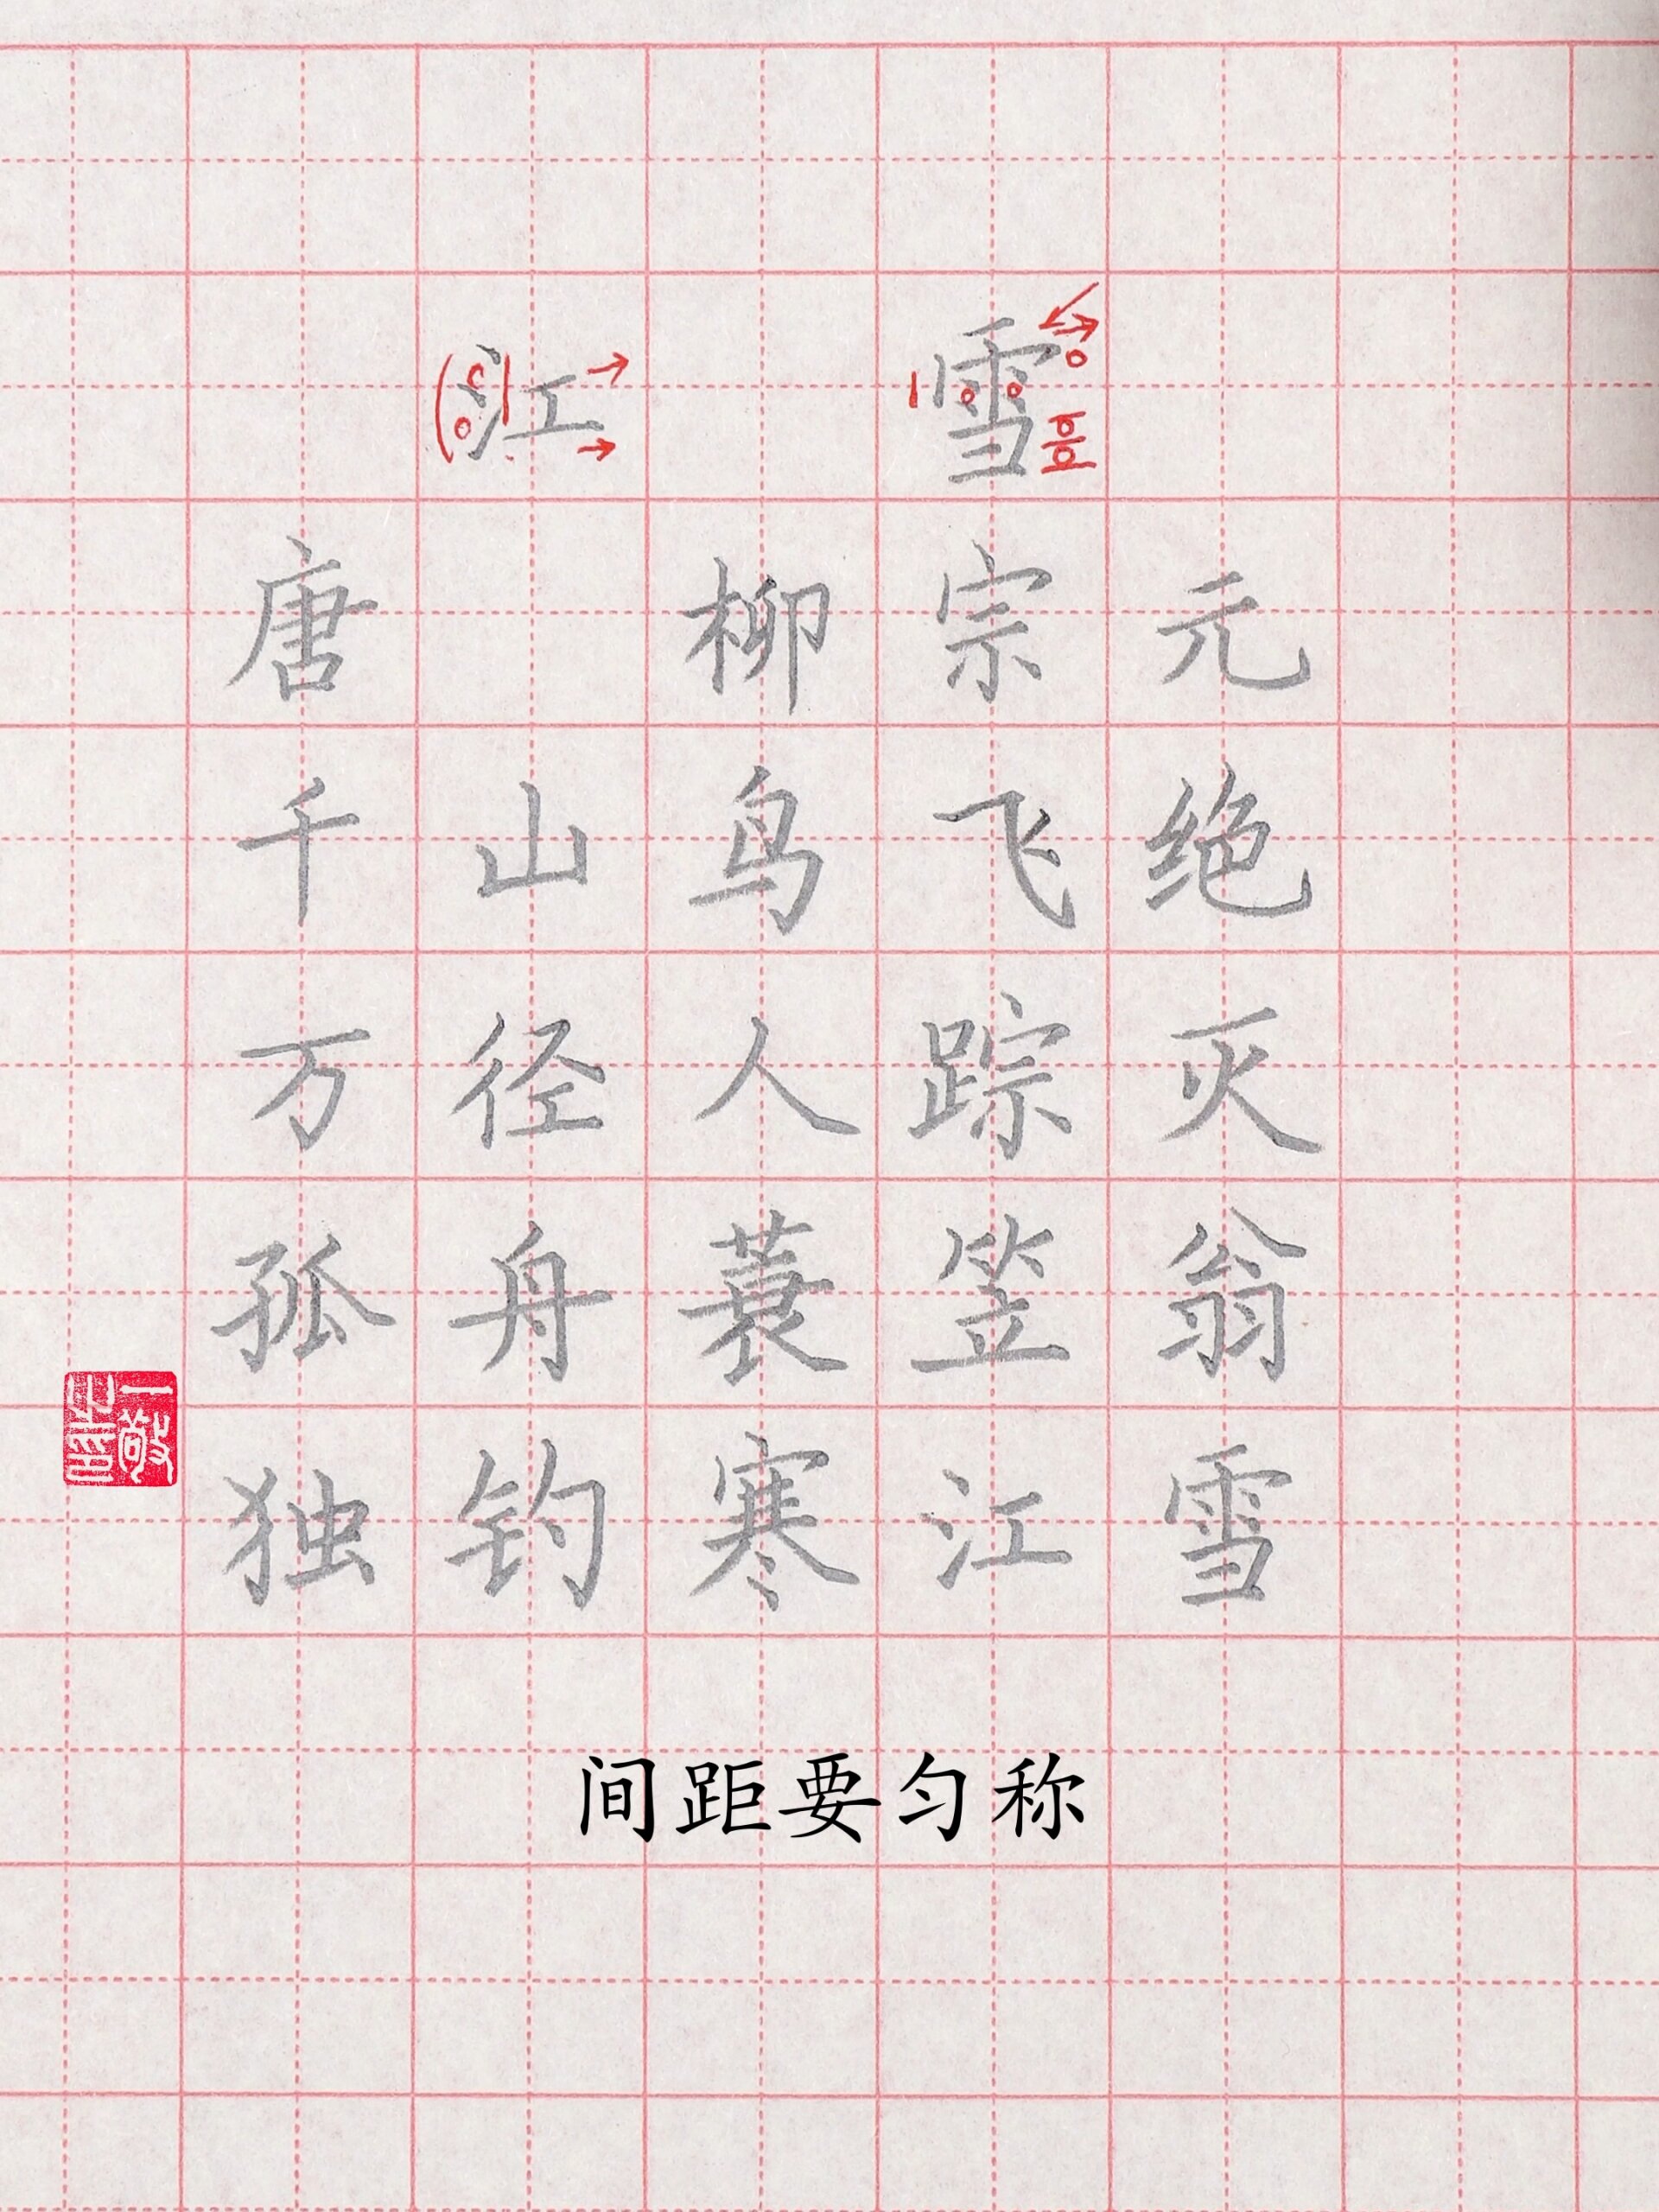 江雪
唐 柳宗元
千山鸟飞绝
万径人踪灭
孤舟蓑笠翁
一敬之印
独钓寒江雪
间距要匀称